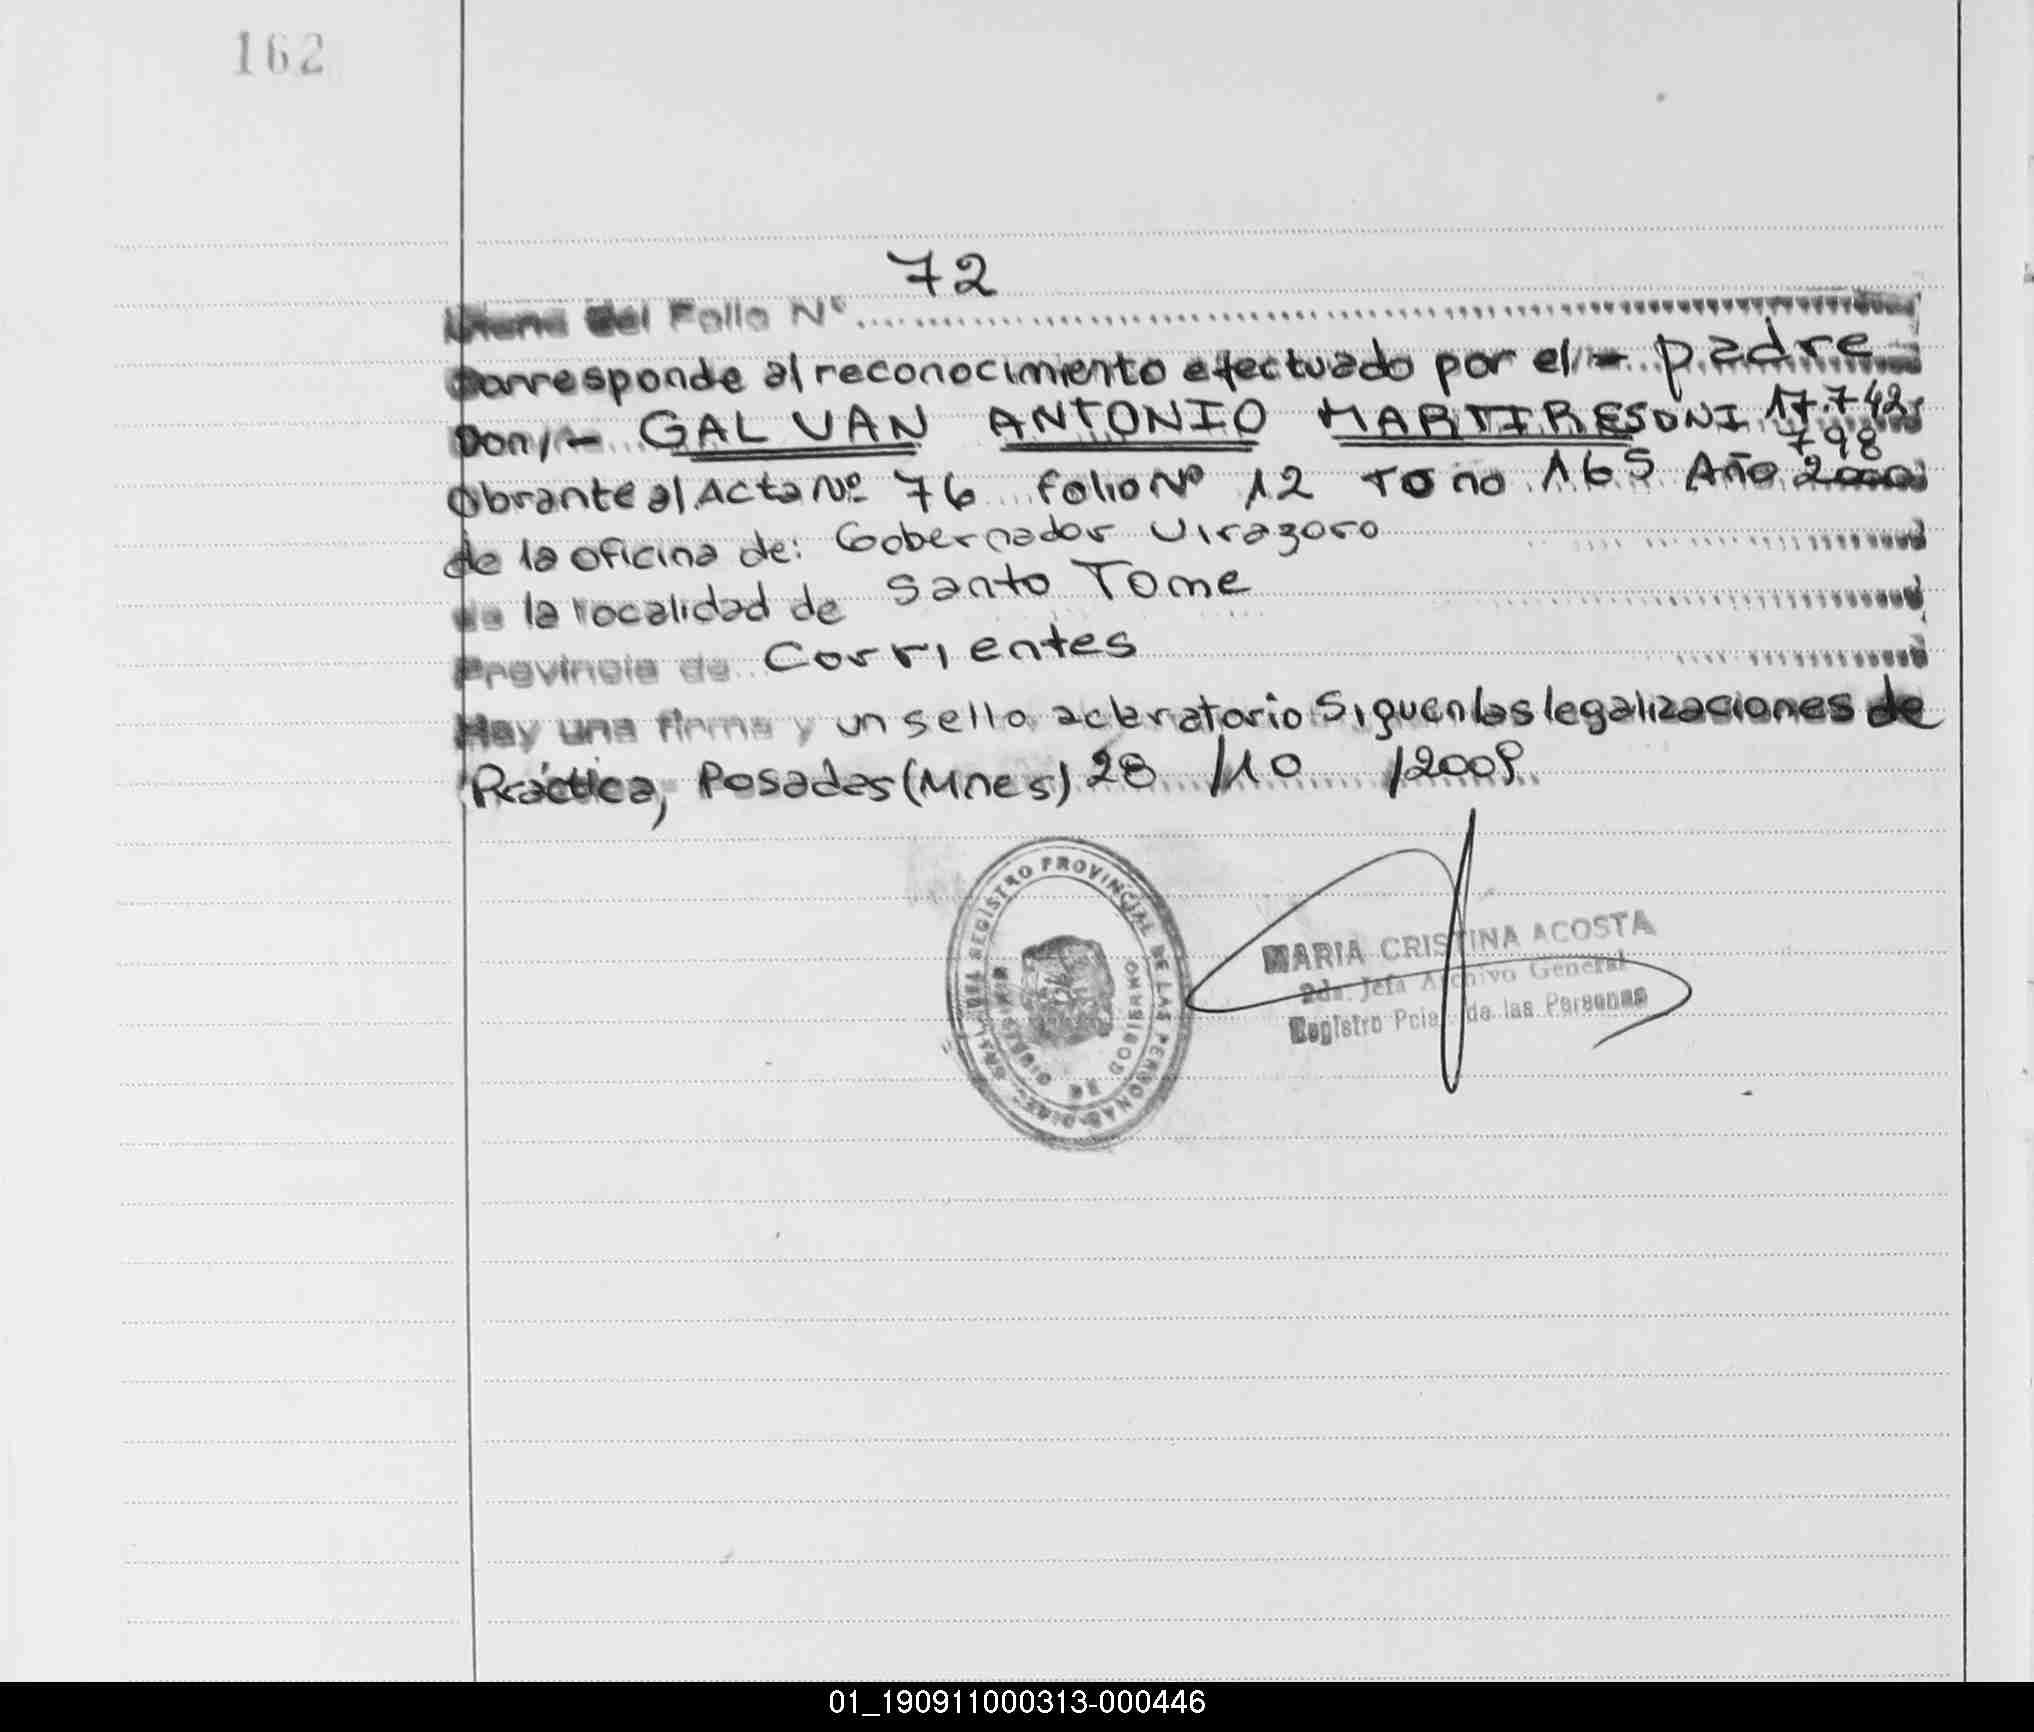 162
Viene del Folio Nº 72
Corresponde al reconocimiento efectuado por el/- padre
Don/- GALVAN ANTONIO MARTIRES DNI 17.742
798
Obrante al Acta Nº 76 folio Nº 12 Tomo 165 Año 2000
de la oficina de: Gobernador Virasoro
de la localidad de Santo Tome
Provincia de Corrientes
Hay una firma y un sello aclaratorio Siguen las legalizaciones de
Práctica, Posadas (Mnes) 28 /10 /2009
REGISTRO PROVINCIAL DE LAS PERSONAS
GOBIERNO DE
MARIA CRISTINA ACOSTA
2da. Jefa Archivo General
Registro Pcial. de las Personas
01_190911000313-000446